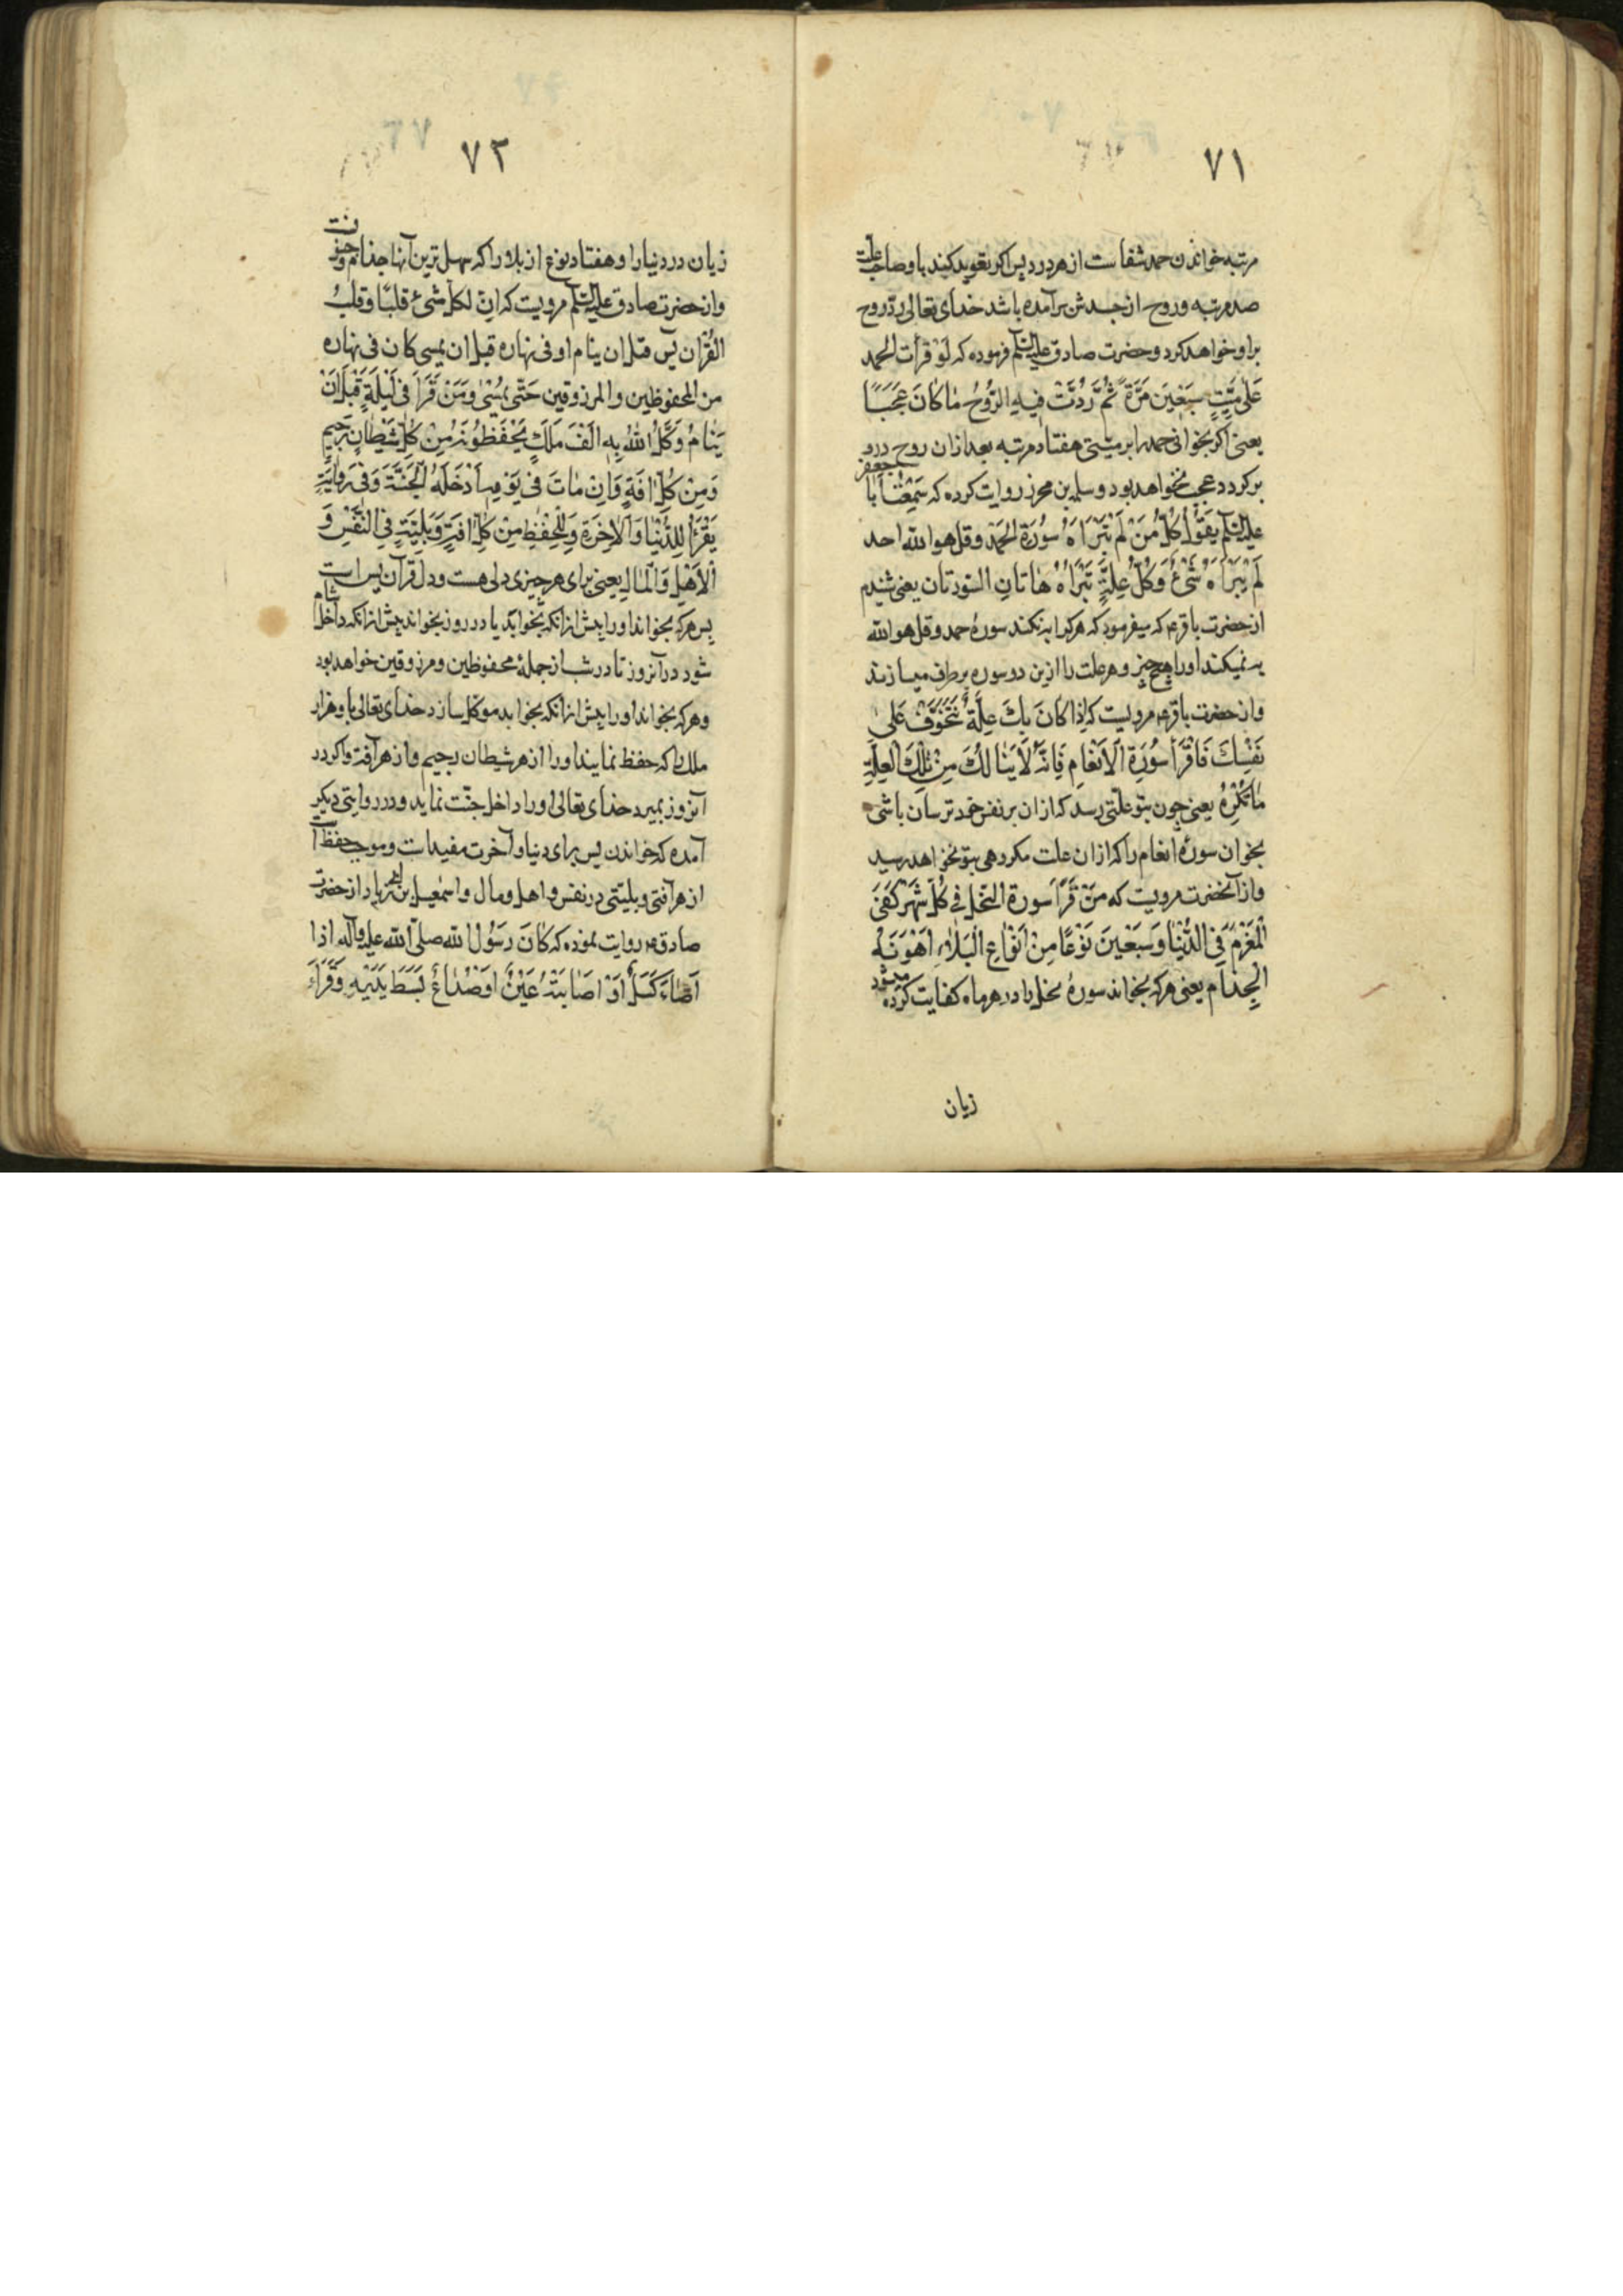 ٧١
مرتبه خواندن حمد شفاست از هر درد پس اكر تعويذ كنيد با و صاحب علت
صد مرتبه و روح از جسدش برآمده باشد خداى تعالى ردّ روح
براو خواهد كرد و حضرت صادق عليه السّلم فرموده كه لَوْ قرأت الحمد
عَلىٰ مَيّتٍ سَبْعَينَ مَرَّةً ثُمَّ رُدَّتْ فيهِ الرُّوُحُ مٰا كٰانَ عَجَبًا
يعنى اكر بخوانى حمد را بر ميتى هفتاد مرتبه بعد ازان روح درو
بركردد عجب نخواهد بود و سلمه بن محرز روايت كرده كه سَمِعْتُ اَبا جعفر
عليه السّلم يَقوُلُ كُلُّ مَنْ لَمْ تَبْرَاهُ سُورَة الحَمْد و قل هو الله احد
لَمْ يَبْرَاهُ شَىْءٌ وَ كُلُّ عِلَّةٍ تَبْرَاهُ هٰاتانِ السّورتان يعنى شنيدم
از حضرت باقر ع كه ميفرمود كه هر كرا به نكند سورهٔ حمد و قل هو الله
به نميكند او را هيچ چيز و هر علت را ازين دو سوره بر طرف ميسازند
و از حضرت باقر ع مرويست كه اِذا كانَ بِكَ عِلَّةٌ تَتَخَوَّفُ عَلىٰ
نَفْسِكَ فَاقْرَأ سُورَة اَلاَنْعامِ فَاِنَّهُ لاٰ يَنٰالُكَ مِنْ تِلْكَ العِلَّةِ
مٰا تَكْرَهُ يعنى چون بتو علّتى رسد كه ازان بر نفس خود ترسان باشى
بخوان سورهٔ انعام را كه ازان علت مكروهى بتو نخواهد رسيد
و از آنحضرت مرويست كه مَنْ قَرَأَ سورة النّحل فى كُلّ شَهْرٍ كُفىَ
الْمَغْرَمُ فِى الدُّنْيٰا وَ سَبْعْينَ نَوْعًا مِنْ اَنْوٰاعِ الْبَلٰاءِ اَهْوَنُهُ
الْجِذام يعنى هر كه بخواند سورهٔ نحل را در هر ماه كفايت كرده ميشود
زيان
٧٢
زيان در دنيا را و هفتاد نوع از بلا را كه سهل ترين آنها جذام و
و از حضرت صادق عليه السّلم مرويست كه ان لكلّ شئ قلبًا و قلبُ
القُرْان يس من قبل ان ينام او فى نهاره قبل ان يمسى كان فى نهاره
من المحفوظين و المرزوقين حَتّى يُمْسٰى وَ مَنْ قَرَأَ فى لَيْلَةٍ قَبْلَ اَنْ
يَنٰامَ وَكَّلَ اللّٰهُ بِهِ الفَ مَلَكٍ يَحْفَظوُنَهُ مِنْ كُلّ شَيْطٰانٍ رَجيمٍ
وَ مِنْ كُلّ افَةٍ وَ اِنْ مٰاتَ فى يَوْمِهِ اَدْخَلَهُ اللّٰه الْجَنَّةَ وَ فى رِوٰايَةٍ
يَقْرَأُ لِلدُّنْيٰا وَ اَلاٰخِرَةِ وَ لِلْحِفْظِ مِنْ كُلِّ افَةٍ وَ بَلِيَّةٍ فِى النَّفْسِ وَ
اْلاَهْلِ وَ اَلْمالِ يعنى براى هر چيزى دلى هست و دل قرآن يس است
پس هر كه بخواند او را پيش ازانكه بخوابد يا در روز بخواند پيش ازانكه داخل شام
شود در آنروز تا در شب از جملهٔ محفوظين و مرزوقين خواهد بود
و هر كه بخواند او را پيش ازانكه بخوابد موكل سازد خداى تعالى باو هزار
ملك را كه حفظ نمايند او را از هر شيطان رجيم و از هر آفت و اكر در
آنروز بميرد خداى تعالى او را داخل جنّت نمايد و در روايتى ديكر
آمده كه خواندن يس براى دنيا و آخرت مفيد است و موجب حفظ
از هر آفتى و بليّتى در نفس و اهل و مال و اسمعيل بن از حضرت
صادق ع روايت نموده كه كانَ رَسُول الله صلّى الله عليه و آله اذا
اَصٰابَهُ كَسَلٌ اَوْ اصٰابَتْهُ عَيْنٌ اَوْ صُدٰاعٌ بَسَطَ يَدَيْهِ وَ قَرَأَ